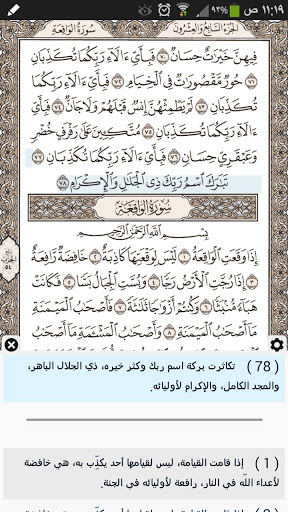 ١١:١٩ ص ٩٣%
الجزء السابع والعشرون سورة الواقعة
فِيهِنَّ خَيْرَٰتٌ حِسَانٌ ٧٠ فَبِأَيِّ ءَالَآءِ رَبِّكُمَا تُكَذِّبَانِ
٧١ حُورٌ مَّقْصُورَٰتٌ فِي ٱلْخِيَامِ ٧٢ فَبِأَيِّ ءَالَآءِ رَبِّكُمَا
تُكَذِّبَانِ ٧٣ لَمْ يَطْمِثْهُنَّ إِنسٌ قَبْلَهُمْ وَلَا جَآنٌّ ٧٤ فَبِأَيِّ
ءَالَآءِ رَبِّكُمَا تُكَذِّبَانِ ٧٥ مُتَّكِـِٔينَ عَلَىٰ رَفْرَفٍ خُضْرٍ
وَعَبْقَرِيٍّ حِسَانٍ ٧٦ فَبِأَيِّ ءَالَآءِ رَبِّكُمَا تُكَذِّبَانِ ٧٧
تَبَٰرَكَ ٱسْمُ رَبِّكَ ذِي ٱلْجَلَٰلِ وَٱلْإِكْرَامِ ٧٨
سُورَةُ الوَاقِعَةِ
بِسْمِ ٱللَّهِ ٱلرَّحْمَٰنِ ٱلرَّحِيمِ
إِذَا وَقَعَتِ ٱلْوَاقِعَةُ ١ لَيْسَ لِوَقْعَتِهَا كَاذِبَةٌ ٢ خَافِضَةٌ رَّافِعَةٌ
٣ إِذَا رُجَّتِ ٱلْأَرْضُ رَجًّا ٤ وَبُسَّتِ ٱلْجِبَالُ بَسًّا ٥ فَكَانَتْ
هَبَآءً مُّنۢبَثًّا ٦ وَكُنتُمْ أَزْوَٰجًا ثَلَٰثَةً ٧ فَأَصْحَٰبُ ٱلْمَيْمَنَةِ
مَآ أَصْحَٰبُ ٱلْمَيْمَنَةِ ٨ وَأَصْحَٰبُ ٱلْمَشْـَٔمَةِ مَآ أَصْحَٰبُ
الحزب ٥٤
(78) تكاثرت بركة اسم ربك وكثر خيره، ذي الجلال الباهر،
والمجد الكامل، والإكرام لأوليائه.
(1) إذا قامت القيامة، ليس لقيامها أحد يكذِّب به، هي خافضة
لأعداء الله في النار، رافعة لأوليائه في الجنة.